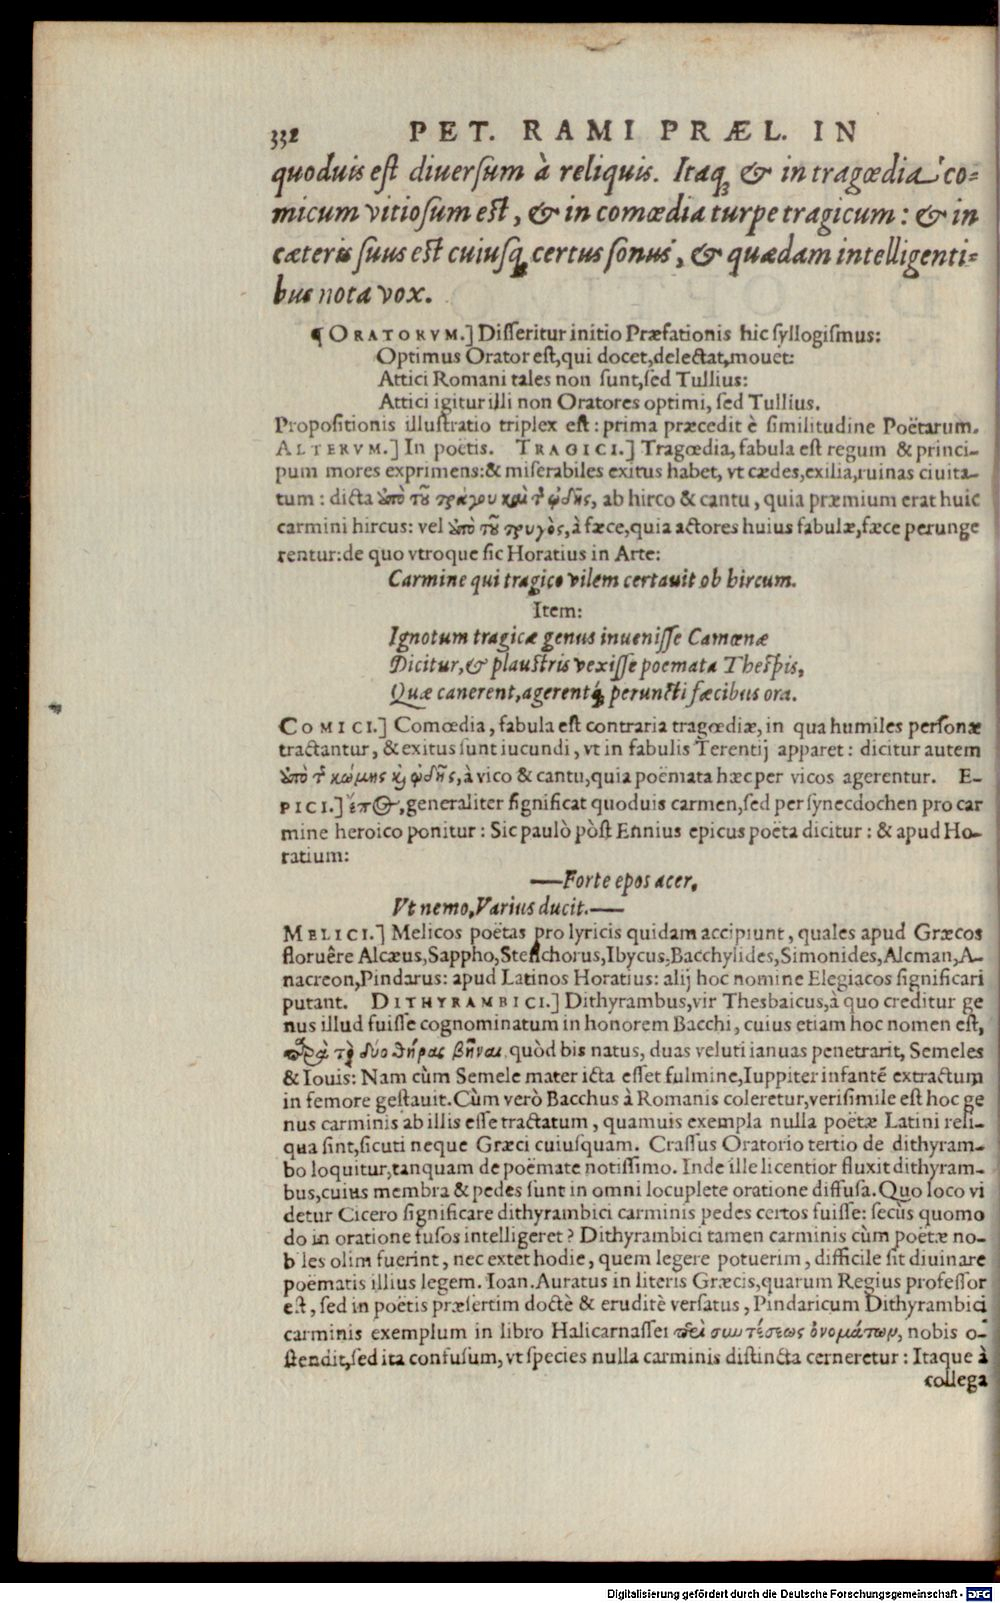 332 PET. RAMI PRÆL. IN
quoduis eſt diuerſum à reliquis. Itaq; & in tragœdia co-
micum vitioſum eſt, & in comœdia turpe tragicum: & in
cæteris ſuus eſt cuiuſq; certus ſonus, & quædam intelligenti-
bus nota vox.
¶ ORATORVM.] Diſſeritur initio Præfationis hic ſyllogiſmus:
Optimus Orator eſt, qui docet, delectat, mouet:
Attici Romani tales non ſunt, ſed Tullius:
Attici igitur illi non Oratores optimi, ſed Tullius.
Propoſitionis illuſtratio triplex eſt: prima præcedit è ſimilitudine Poëtarum.
ALTERVM.] In poëtis. TRAGICI.] Tragœdia, fabula eſt regum & princi-
pum mores exprimens: & miſerabiles exitus habet, vt cædes, exilia, ruinas ciuita-
tum: dicta ὑπὸ τοῦ τράγου καὶ τ̃ ᾠδῆς, ab hirco & cantu, quia præmium erat huic
carmini hircus: vel ὑπὸ τοῦ τρυγὸς, à fæce, quia actores huius fabulæ, fæce perunge
rentur: de quo vtroque ſic Horatius in Arte:
Carmine qui tragico vilem certauit ob hircum.
Item:
Ignotum tragicæ genus inueniſſe Camœnæ
Dicitur, & plauſtris vexiſſe poemata Theſpis,
Quæ canerent, agerentq; peruncti fæcibus ora.
COMICI.] Comœdia, fabula eſt contraria tragœdiæ, in qua humiles perſonæ
tractantur, & exitus ſunt iucundi, vt in fabulis Terentij apparet: dicitur autem
ὑπὸ τ̃ κώμης κỳ ᾠδῆς, à vico & cantu, quia poëmata hæc per vicos agerentur. E-
PICI.] ἔπος, generaliter ſignificat quoduis carmen, ſed per ſynecdochen pro car
mine heroico ponitur: Sic paulò pòſt Ennius epicus poëta dicitur: & apud Ho-
ratium:
—Forte epos acer,
Vt nemo, Varius ducit.—
MELICI.] Melicos poëtas pro lyricis quidam accipiunt, quales apud Græcos
floruêre Alcæus, Sappho, Steſichorus, Ibycus, Bacchylides, Simonides, Alcman, A-
nacreon, Pindarus: apud Latinos Horatius: alij hoc nomine Elegiacos ſignificari
putant. DITHYRAMBICI.] Dithyrambus, vir Thesbaicus, à quo creditur ge
nus illud fuiſſe cognominatum in honorem Bacchi, cuius etiam hoc nomen eſt,
παρὰ τὸ δύο θήρας βῆναι, quòd bis natus, duas veluti ianuas penetrarit, Semeles
& Iouis: Nam cùm Semele mater icta eſſet fulmine, Iuppiter infantẽ extractum
in femore geſtauit. Cùm verò Bacchus à Romanis coleretur, veriſimile eſt hoc ge
nus carminis ab illis eſſe tractatum, quamuis exempla nulla poëtæ Latini reli-
qua ſint, ſicuti neque Græci cuiuſquam. Craſſus Oratorio tertio de dithyram-
bo loquitur, tanquam de poëmate notiſſimo. Inde ille licentior fluxit dithyram-
bus, cuius membra & pedes ſunt in omni locuplete oratione diffuſa. Quo loco vi
detur Cicero ſignificare dithyrambici carminis pedes certos fuiſſe: ſecùs quomo
do in oratione fuſos intelligeret? Dithyrambici tamen carminis cùm poëtæ no-
b les olim fuerint, nec extet hodie, quem legere potuerim, difficile ſit diuinare
poëmatis illius legem. Ioan. Auratus in literis Græcis, quarum Regius profeſſor
eſt, ſed in poëtis præſertim doctè & eruditè verſatus, Pindaricum Dithyrambici
carminis exemplum in libro Halicarnaſſei περὶ συνθέσεως ὀνομάτων, nobis o-
ſtendit, ſed ita confuſum, vt ſpecies nulla carminis diſtincta cerneretur: Itaque à
collega
Digitalisierung gefördert durch die Deutsche Forschungsgemeinschaft - DFG